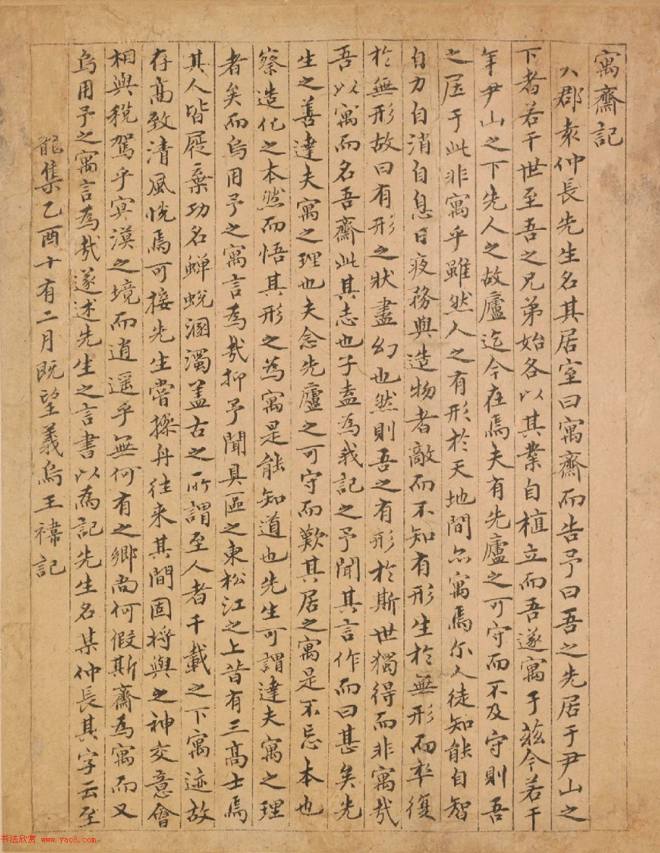 寓齋記
郡袁仲長先生名其居室曰寓齋而告予曰吾之先居于尹山之
下者若干世至吾之兄弟始各以其業自植立而吾遂寓于茲今若干
年尹山之下先人之故廬迄今在焉夫有先廬之可守而不及守則吾
之居于此非寓乎雖然人之有形於天地間亦寓焉尒人徒知能自智
自力自消自息日疲務與造物者敵而不知有形生於無形而卒復
於無形故曰有形之狀盡幻也然則吾之有形於斯世獨得而非寓哉
吾以寓而名吾齋此其志也子盍為我記之予聞其言作而曰甚矣先
生之善達夫寓之理也夫念先廬之可守而歎其居之寓是不忘本也
察造化之本然而悟其形之為寓是能知道也先生可謂達夫寓之理
者矣而烏用予之寓言為哉抑予聞具區之東松江之上昔有三高士焉
其人皆屣棄功名蟬蛻溷濁盖古之所謂至人者千載之下寓迹故
存高致清風恍焉可接先生嘗操舟往来其間固將與之神交意會
相與稅駕乎冥漠之境而逍遥乎無何有之鄉尚何假斯齋為寓而又
烏用予之寓言為哉遂述先生之言書以為記先生名某仲長其字云至
龍集乙酉十有二月既望義烏王禕記
书法欣赏 www.yac8.com